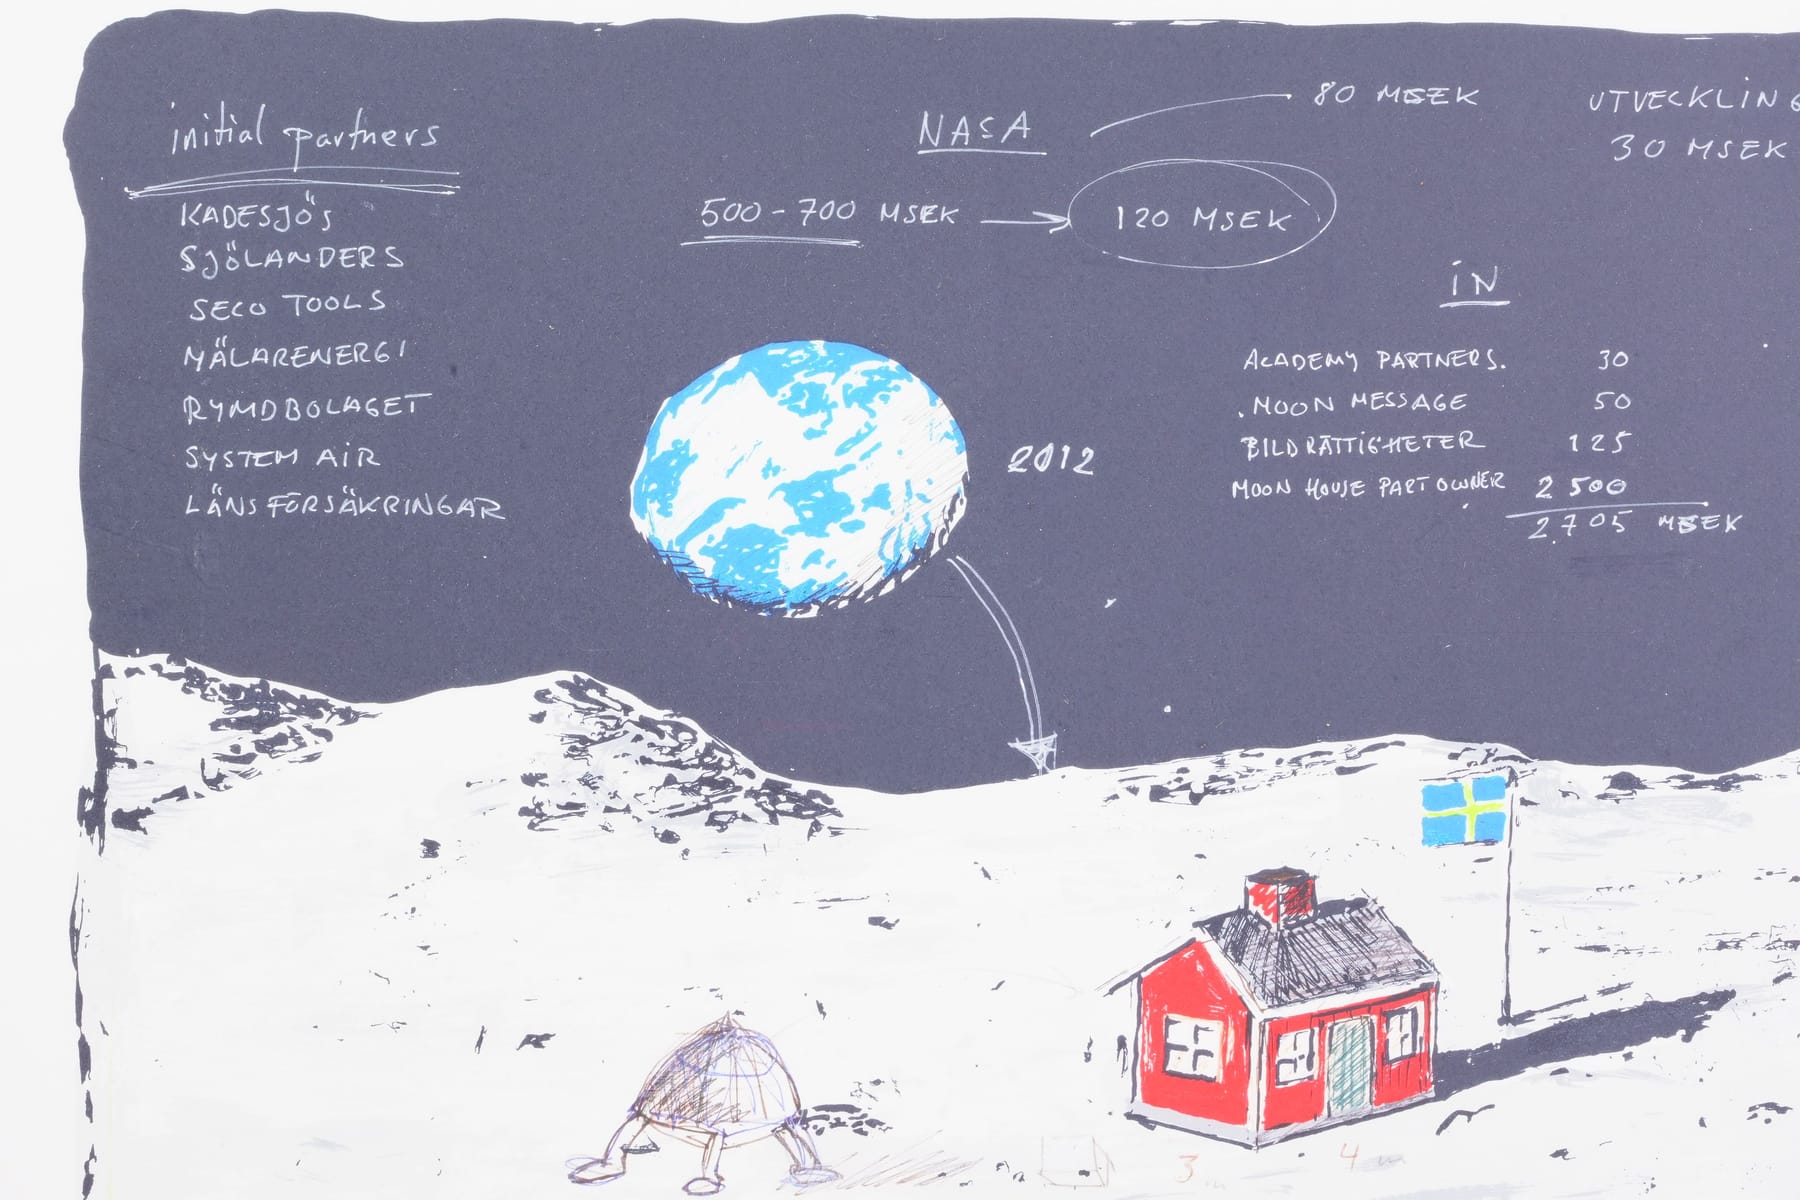 initial partners
KADESJÖS
SJÖLANDERS
SECO TOOLS
MÄLARENERGI
RYMDBOLAGET
SYSTEM AIR
LÄNSFÖRSÄKRINGAR
NASA
80 MSEK
500-700 MSEK
120 MSEK
UTVECKLING
30 MSEK
2012
IN
ACADEMY PARTNERS. 30
MOON MESSAGE 50
BILDRÄTTIGHETER 125
MOON HOUSE PARTOWNER 2 500
2.705 MSEK
3 m
4 m